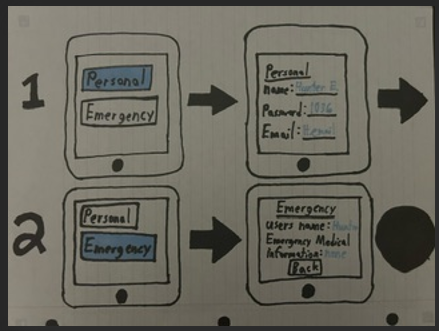 1
Personal
Emergency
Personal
name: Hunter E.
Password: 1036
Email:
2
Personal
Emergency
Emergency
Users name:
Emergency Medical
Information: none
Back